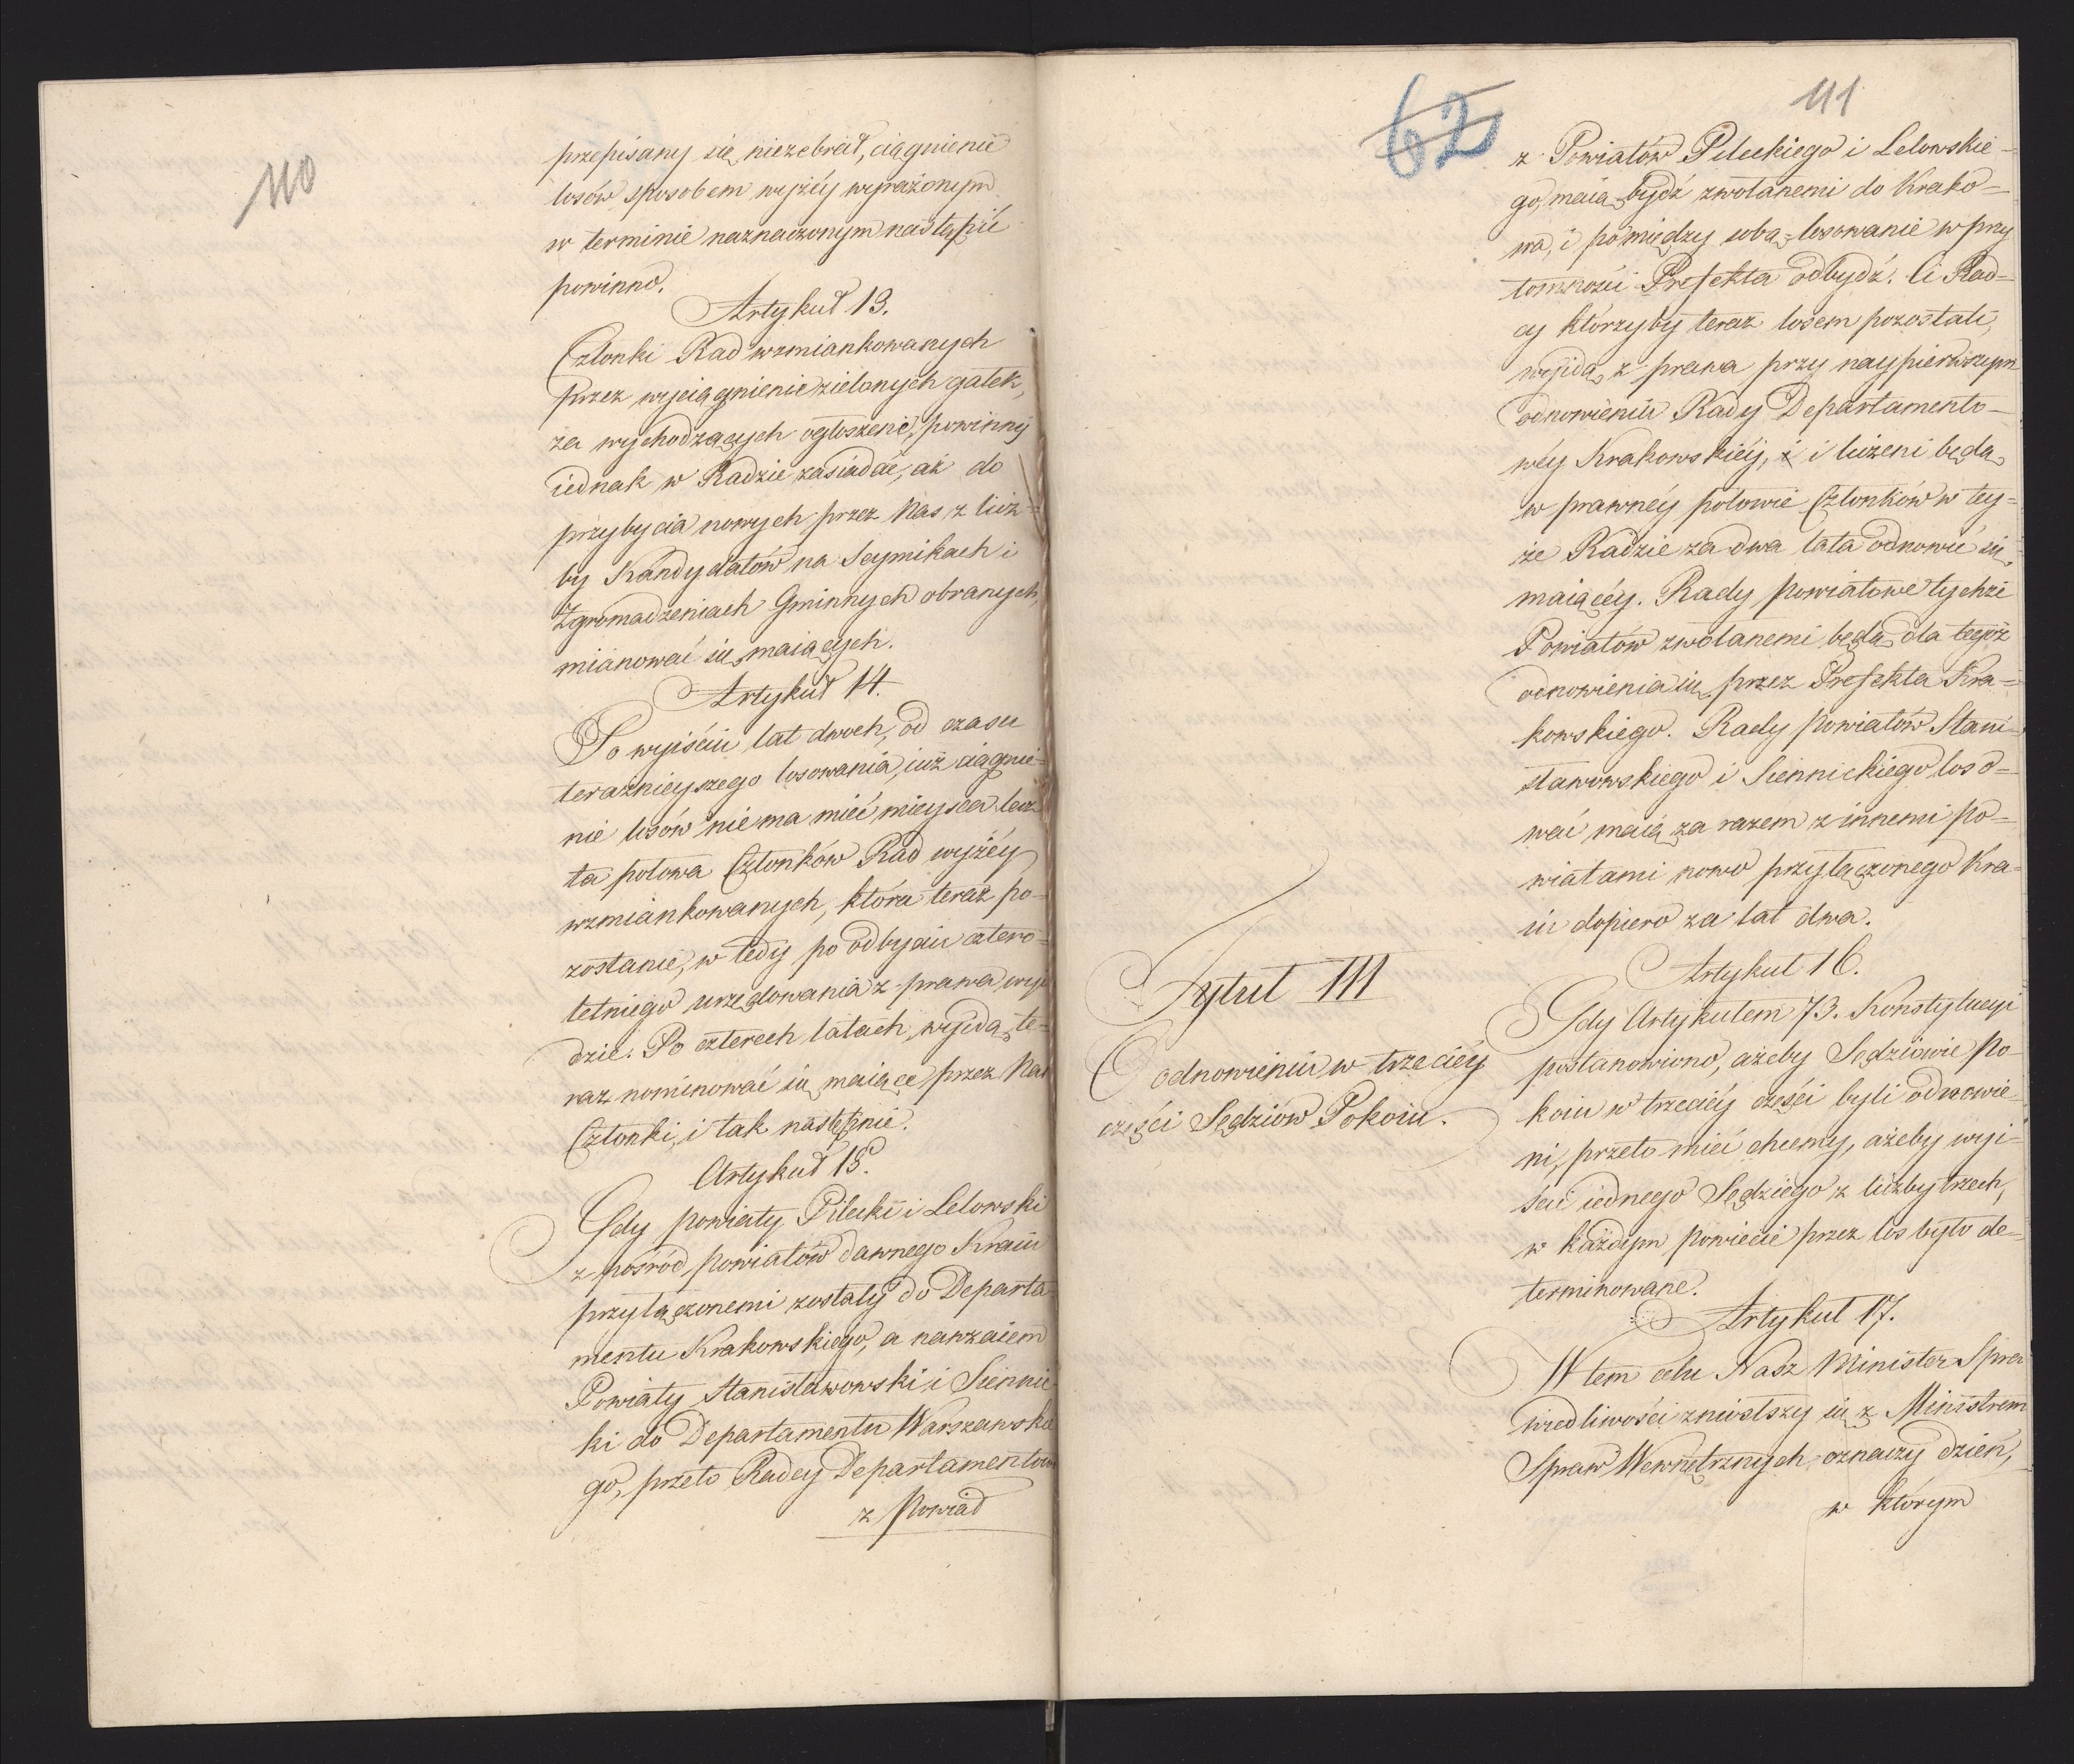 110
przepisany się niezebrał, ciągnienie
losów sposobem wyżéy wyrażonym
w terminie naznaczonym nastąpić
powinno.
Artykuł 13.
Członki Rad wzmiankowanych
przez wyciągnienie zielonych gałek,
za wychodzących ogłoszeni, powinny
iednak w Radzie zasiadać, aż do
przybycia nowych przez Nas z licz=
by Kandydatów na Seymikach i
Zgromadzeniach Gminnych obranych,
mianować się maiących.
Artykuł 14.
Po wyiściu lat dwoch, od czasu
teraźnieyszego losowania, iuż ciągnie=
nie losów nie ma mieć mieysca lecz
ta połowa Członków Rad wyżéy
wzmiankowanych, która teraz po=
zostanie, w tedy po odbyciu cztero=
letniego urzędowania z prawa wyi
dzie. Po czterech latach, wyidą te=
raz nominować się maiące przez Nas
Członki, i tak następnie.
Artykuł 15.
Gdy powiaty Pilecki i Lelowski
z pośród powiatów dawnego Kraiu
przyłączonemi zostały do Departa=
mentu Krakowskiego, a nawzaiem
Powiaty Stanisławowski i Siennic
ki do Departamentu Warszawskie
go, przeto Radcy Departamentow
z Powiad
62
111
z Powiatów Pileckiego i Lelowskie=
go, maią bydź zwołanemi do Krako=
wa, i pomiędzy sobą losowanie w przy
tomności Prefekta odbydź. Ci Rad=
cy którzyby teraz losem pozostali,
wyidą z prawa przy naypierwszym
odnowieniu Rady Departamento=
wéy Krakowskiéy, i i liczeni będą
w prawnéy połowie Członków w tey=
że Radzie za dwa lata odnowić się
maiącéy. Rady powiatowe tychże
Powiatów zwołanemi będą dla tegoż
odnowienia się przez Prefekta Kra=
kowskiego. Rady powiatów Stani=
sławowskiego i Siennickiego loso=
wać maią za razem z innemi po=
wiatami nowo przyłączonego Kra=
iu dopiero za lat dwa.
Tytuł III
O odnowieniu w trzeciéy
części Sędziów Pokoiu.
Artykuł 16.
Gdy Artykułem 73. Konstytucyi
postanowiono, ażeby Sędziowie Po=
koiu w trzeciéy części byli odnowie
ni, przeto mieć chcemy, ażeby wyi=
ście iednego Sędziego z liczby trzech,
w każdym powiecie przez los było de=
terminowane.
Artykuł 17.
W tem celu Nasz Minister Spra
wiedliwości zniosłszy się z Ministrem
Spraw Wewnętrznych oznaczy dzień,
w którym